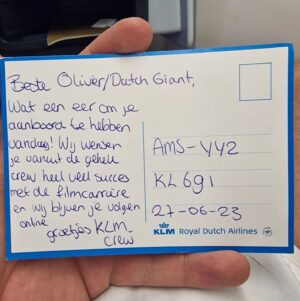 Beste Oliver/Dutch Giant,
Wat een eer om je
aanboord te hebben
vandaag! Wij wensen
je vanuit de gehele
crew heel veel succes
met de filmcarrière
en wij blijven je volgen
online
groetjes KLM
crew
AMS-YYZ
KL691
27-06-23
KLM Royal Dutch Airlines